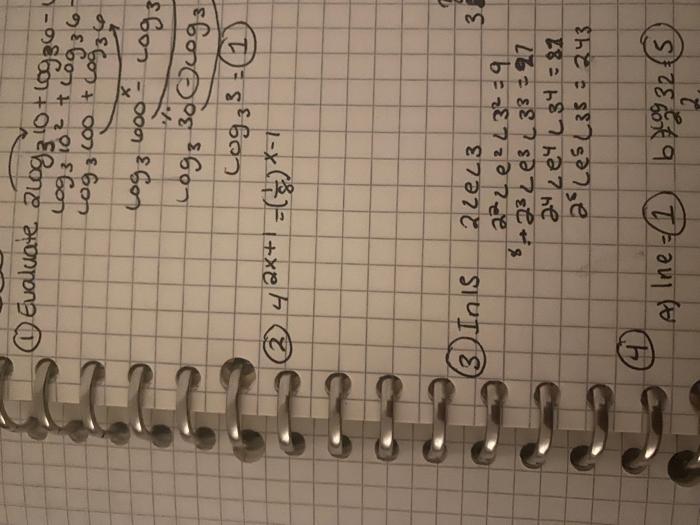 ① Evaluate 2log₃10 + log₃6 -
log₃10² + log₃6 -
log₃100 + log₃6
log₃600 - log₃
log₃30 - log₃
log₃3 = 1
② 4^2x+1 = (1/8)^x-1
③ In15 2<e<3
2²<e²<3²=9
8 → 2³<e³<3³=27
2⁴<e⁴<3⁴=81
2⁵<e⁵<3⁵=243
④ A) lne = 1 b) log₂32 = 5